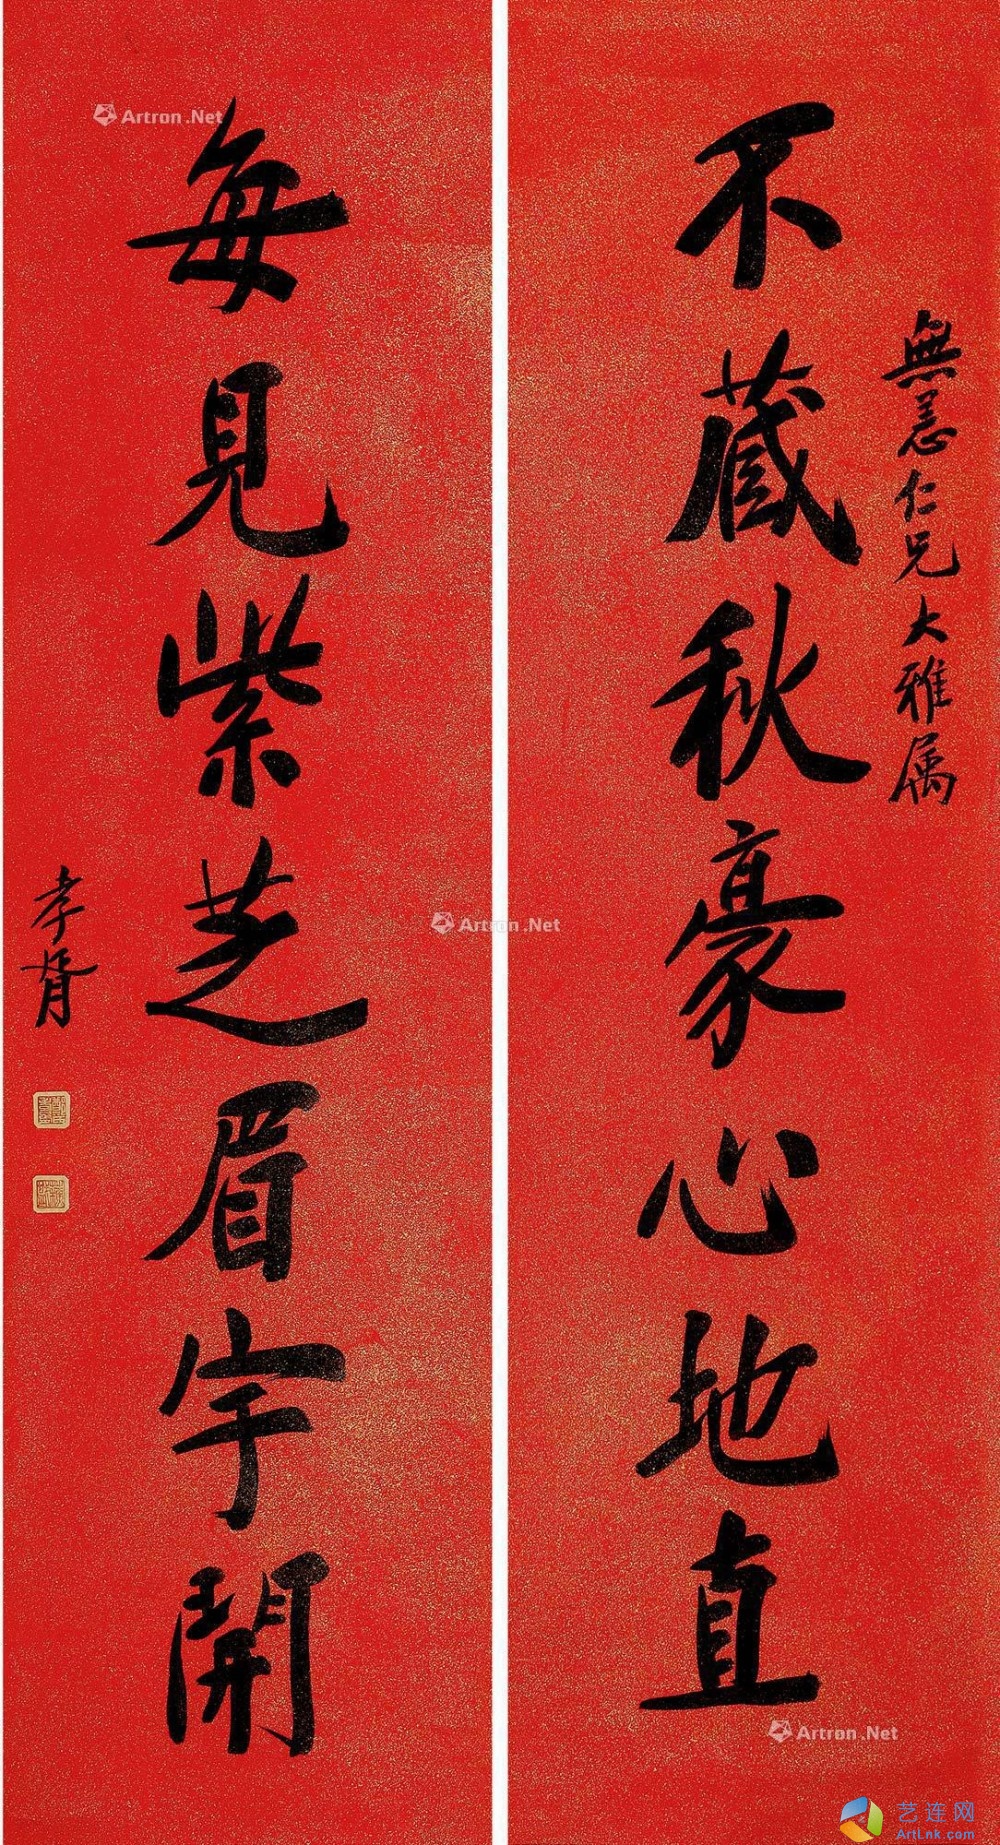 無恙仁兄大雅属
不藏秋豪心地直
每見紫芝眉宇開
孝胥
Artron.Net
Artron.Net
Artron.Net
艺连网
ArtLnk.com